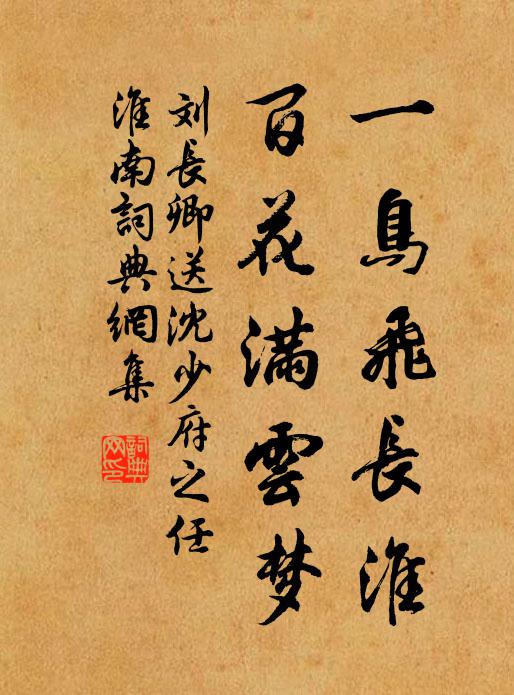 一鳥飛長淮
百花滿雲梦
刘長卿送沈少府之任
淮南詞典網集
詞典
网印